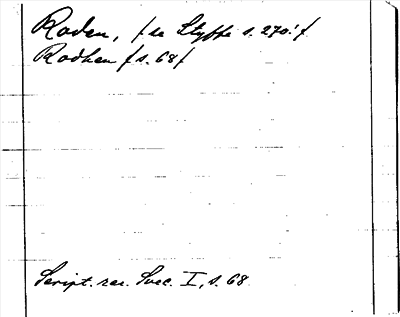 Roden, /se Styffe s. 270!/
Rodhen / s. 68/
Script. rer. Svec. I, s. 68